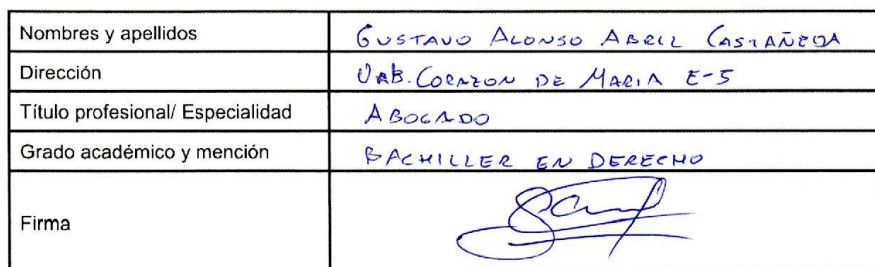 Nombres y apellidos GUSTAVO ALONSO ABRIL CASTAÑEDA
Dirección URB. CORAZON DE MARIA E-5
Título profesional/ Especialidad ABOGADO
Grado académico y mención BACHILLER EN DERECHO
Firma